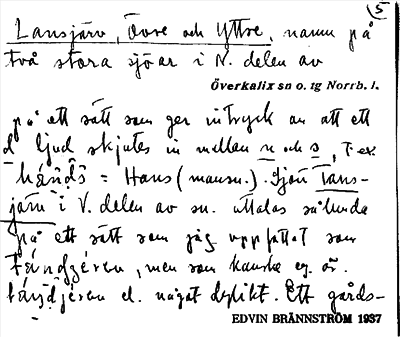 5
Lansjärv, Övre och Yttre, namn på
två stora sjöar i N. delen av
Överkalix sn o. tg Norrb. l.
på ett sätt som ger intryck av att ett
d ljud skjutes in mellan n och s, t. ex.
= Hans (mansn.). Sjön Tans-
järv i V. delen av sn. uttalas sålunda
på ett sätt som jag uppfattat som
men som kanske eg. är
el. något dylikt. Ett gårds-
EDVIN BRÄNNSTRÖM 1937